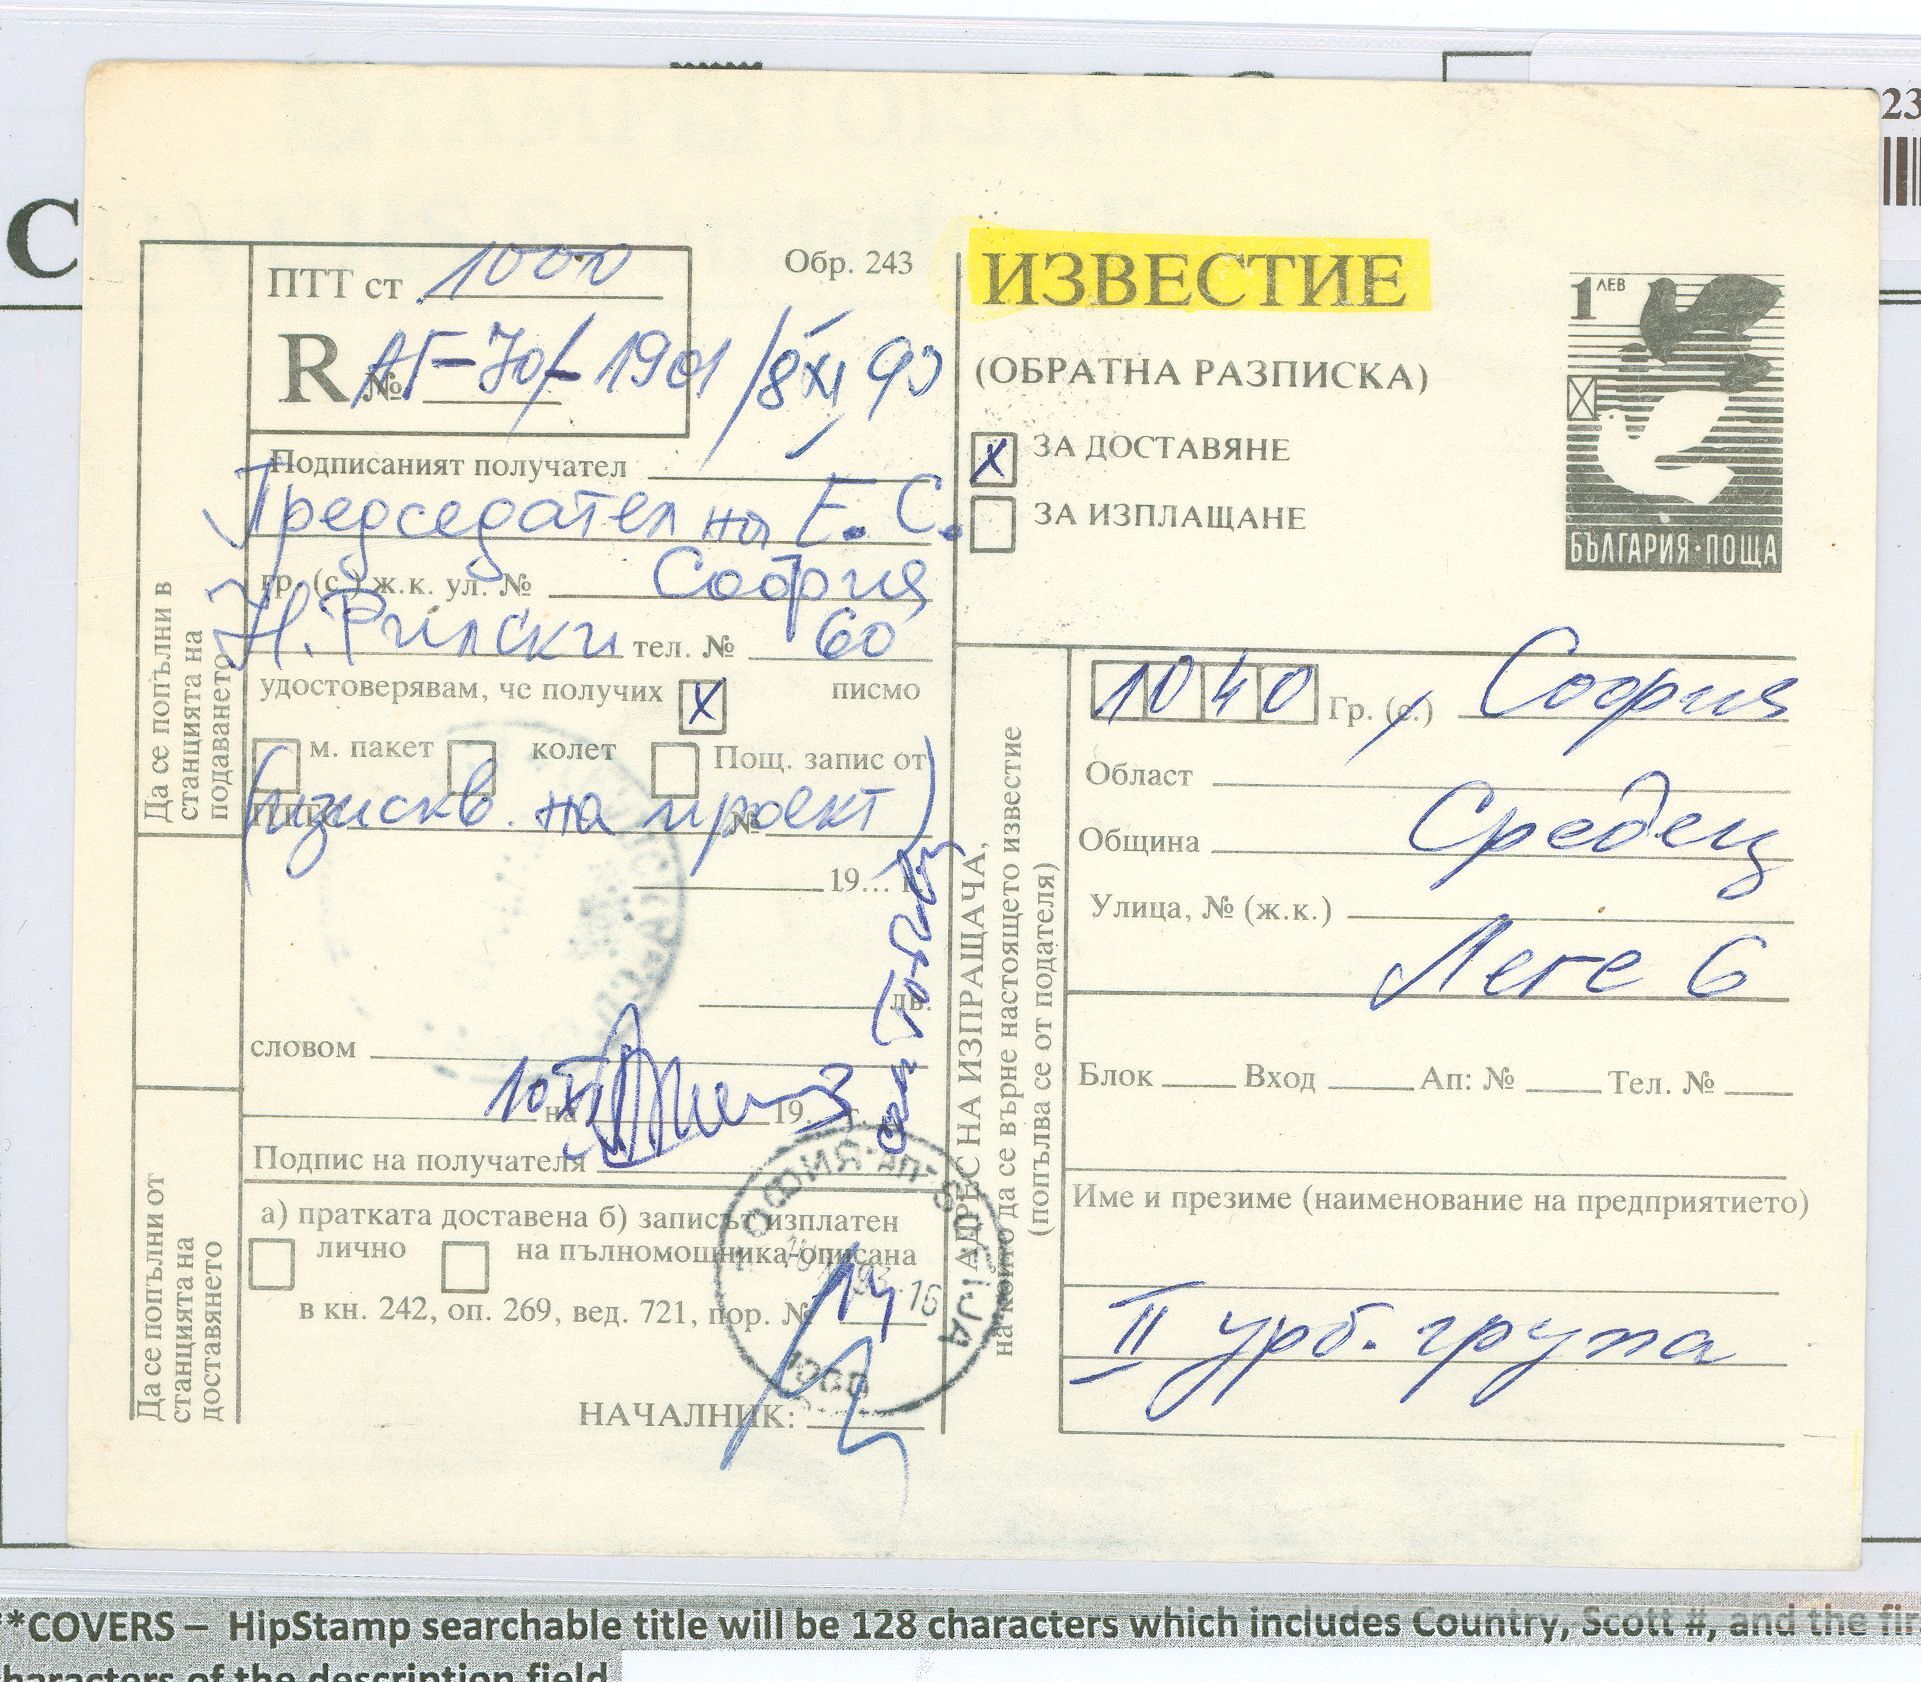 23
C
ПТТ ст 1000
Обр. 243
R № АГ-70/-1901 /8 XI 93
Подписаният получател
Председател на Е. С.
гр. (с.) ж.к. ул. № София
Н. Рилски тел. № 60
удостоверявам, че получих X писмо
м. пакет колет Пощ. запис от
(изискв. на проект) №
19... г.
лв.
словом
10 XI на 19 г.
Подпис на получателя
а) пратката доставена б) записът изплатен
лично на пълномощника-описана
в кн. 242, оп. 269, вед. 721, пор. № 14
НАЧАЛНИК:
Да се попълни в
станцията на
подаването
Да се попълни от
станцията на
доставянето
СОФИЯ
93-16
1000
ИЗВЕСТИЕ
(ОБРАТНА РАЗПИСКА)
X ЗА ДОСТАВЯНЕ
ЗА ИЗПЛАЩАНЕ
1 ЛЕВ
БЪЛГАРИЯ·ПОЩА
АДРЕС НА ИЗПРАЩАЧА,
на който да се върне настоящето известие
(попълва се от подателя)
1040 Гр. (с.) София
Област
Община Средец
Улица, № (ж.к.)
Леге 6
Блок Вход Ап: № Тел. №
Име и презиме (наименование на предприятието)
II урб. група
**COVERS – HipStamp searchable title will be 128 characters which includes Country, Scott #, and the fir
haracters of the description field